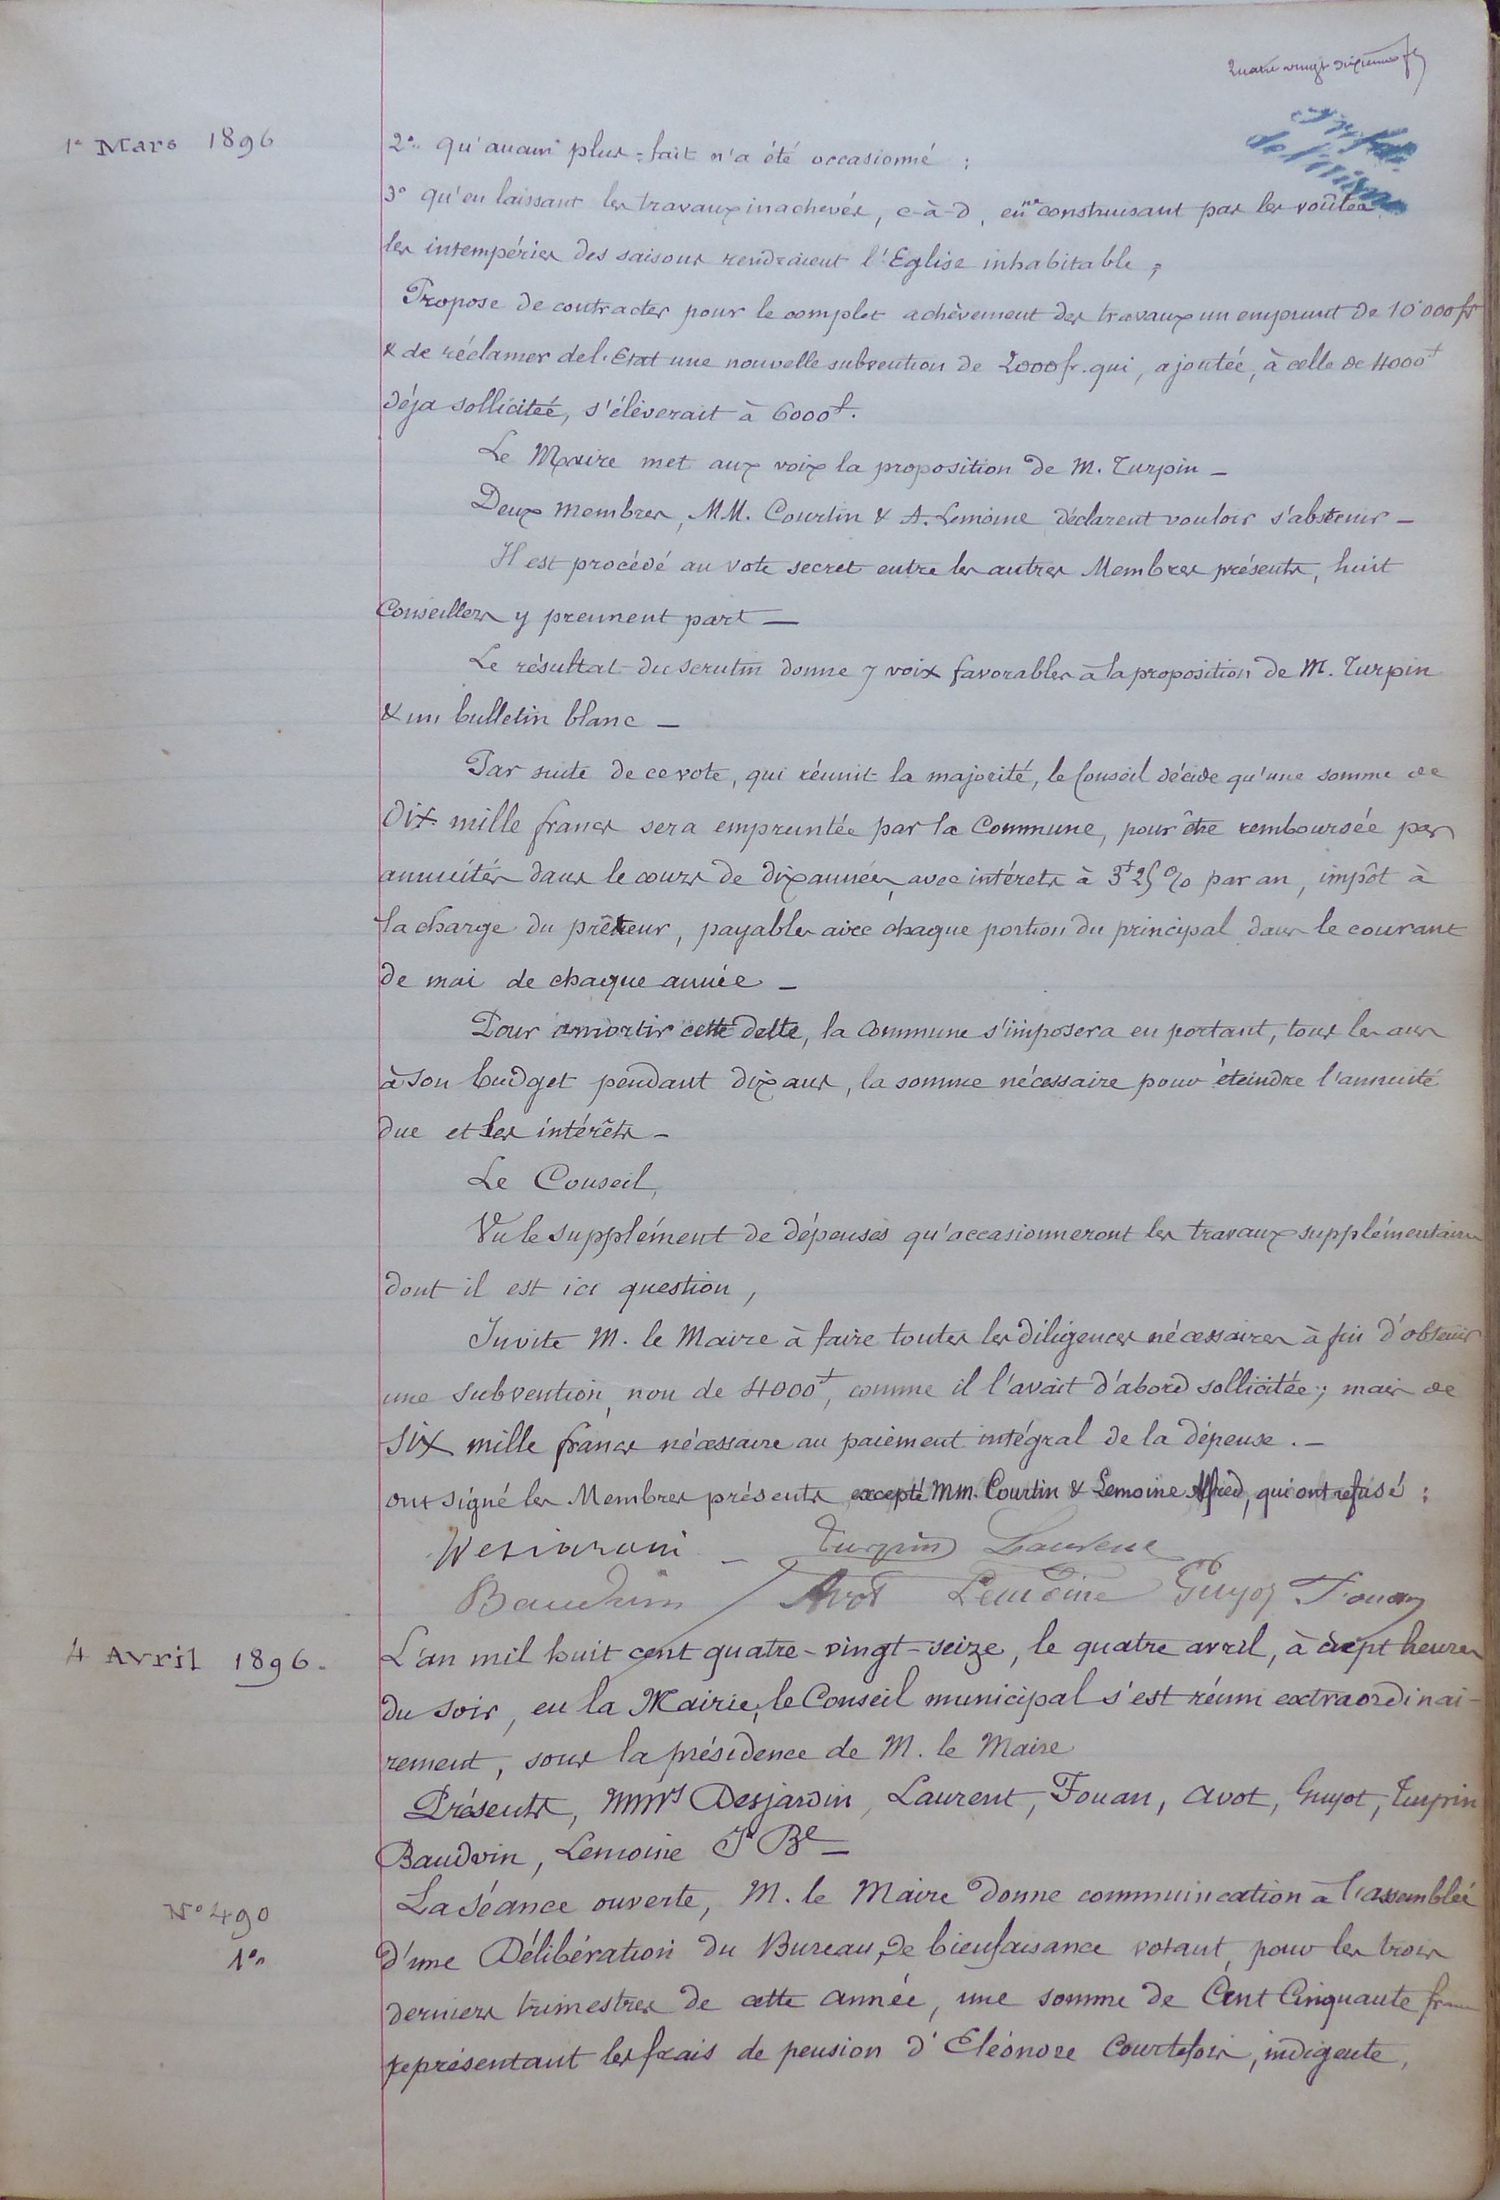 Quatre vingt dixième f
1er Mars 1896
2° qu'aucun plus-fait n'a été occasionné ;
3° qu'en laissant les travaux inachevés, c-à-d, en ne construisant pas les voûtes
les intempéries des saisons rendraient l'Eglise inhabitable ;
Propose de contracter pour le complet achèvement des travaux un emprunt de 10'000 fr
& de réclamer de l'Etat une nouvelle subvention de 2000 fr. qui, ajoutée, à celle de 4000 f
déja sollicitée, s'élèverait à 6000 f.
Le Maire met aux voix la proposition de M. Turpin –
Deux membres, MM. Courtin & A. Lemoine déclarent vouloir s'abstenir –
Il est procédé au vote secret entre les autres Membres présents, huit
Conseillers y prennent part –
Le résultat du scrutin donne 7 voix favorables à la proposition de M. Turpin
& un bulletin blanc –
Par suite de ce vote, qui réunit la majorité, le Conseil décide qu'une somme de
Dix mille francs sera empruntée par la Commune, pour être remboursée par
annuités dans le cours de dix années, avec intérêts à 3f 25 % par an, impôt à
la charge du prêteur, payables avec chaque portion du principal dans le courant
de mai de chaque année –
Pour amortir cette dette, la Commune s'imposera en portant, tous les ans
à son budget pendant dix ans, la somme nécessaire pour éteindre l'annuité
due et les intérêts –
Le Conseil,
Vu le supplément de dépenses qu'occasionneront les travaux supplémentaires
dont il est ici question,
Invite M. le Maire à faire toutes les diligences nécessaires à fin d'obtenir
une subvention, non de 4000 f, comme il l'avait d'abord sollicitée ; mais de
Six mille francs nécessaire au paiement intégral de la dépense. –
ont signé les Membres présents excepté MM. Courtin & Lemoine Alfred, qui ont refusé :
Turpin Laurent
Baudvin Avot Lemoine Guyot Fouan
4 Avril 1896.
L'an mil huit cent quatre-vingt-seize, le quatre avril, à sept heures
du soir, en la Mairie, le Conseil municipal s'est réuni extraordinai-
rement, sous la présidence de M. le Maire
Présents, MMrs Desjardin, Laurent, Fouan, Avot, Guyot, Turpin
Baudvin, Lemoine J Bte –
N° 490
1°
La Séance ouverte, M. le Maire donne communication à l'assemblée
d'une Délibération du Bureau de bienfaisance votant, pour les trois
derniers trimestres de cette année, une somme de Cent Cinquante francs
représentant les frais de pension d'Eléonore Courtefois, indigente,